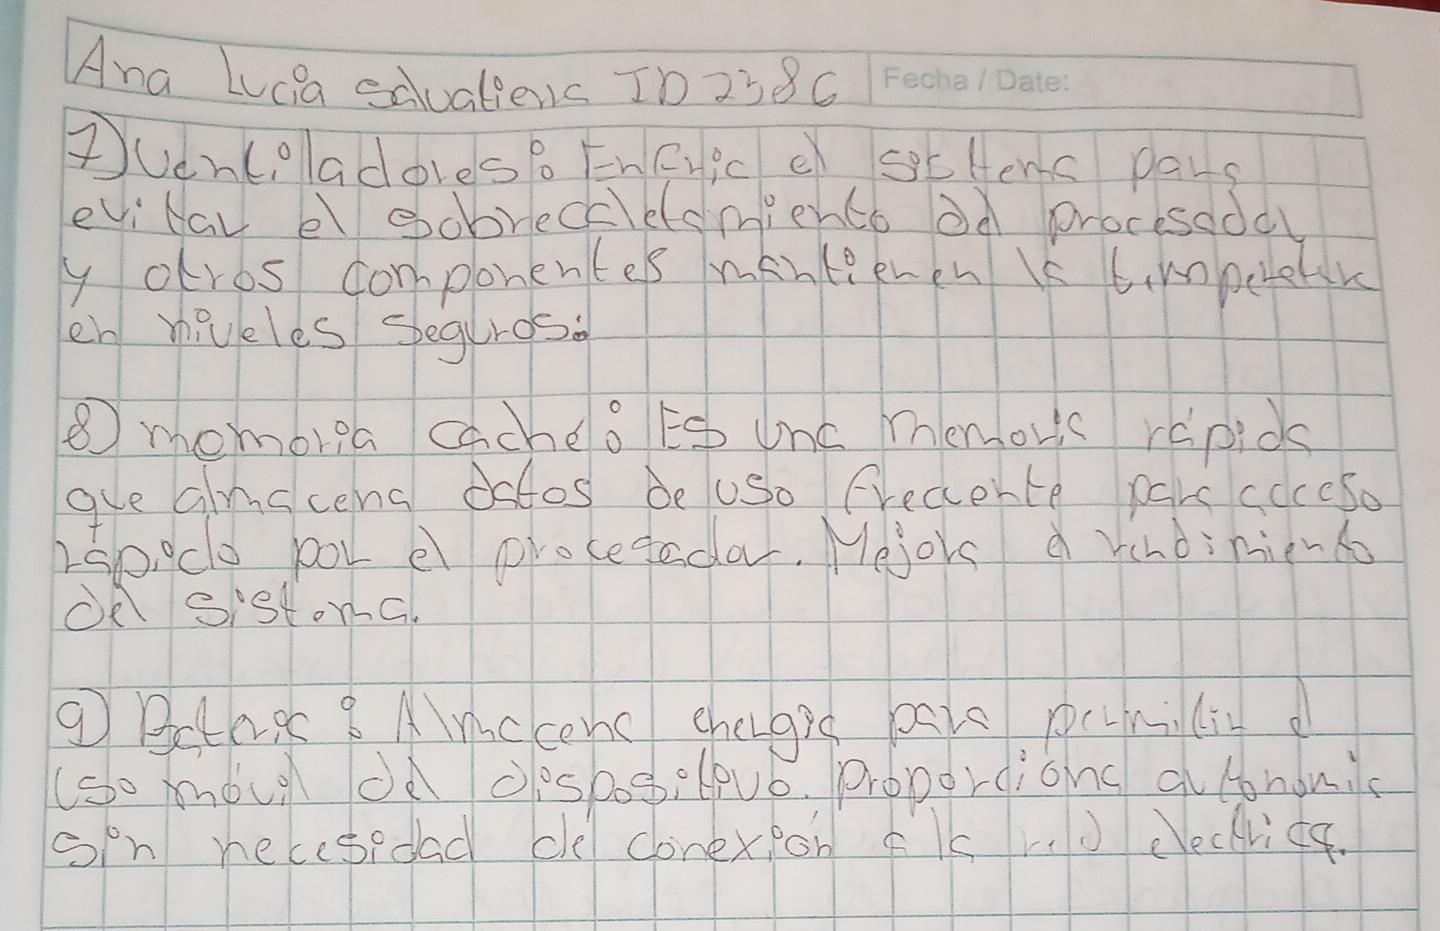 Ana Lucía Salvatierra ID 2386
Fecha / Date:
7) Ventiladores: Enfría el sistema para
evitar el sobrecalentamiento del procesador
y otros componentes mantienen la temperatura
en niveles seguros.
8) memoria caché: Es una memoria rápida
que almacena datos de uso frecuente para acceso
rápido por el procesador. Mejora el rendimiento
del sistema.
9) Batería: Almacena energía para permitir el
uso móvil del dispositivo. Proporciona autonomía
sin necesidad de conexión a la red electrica.